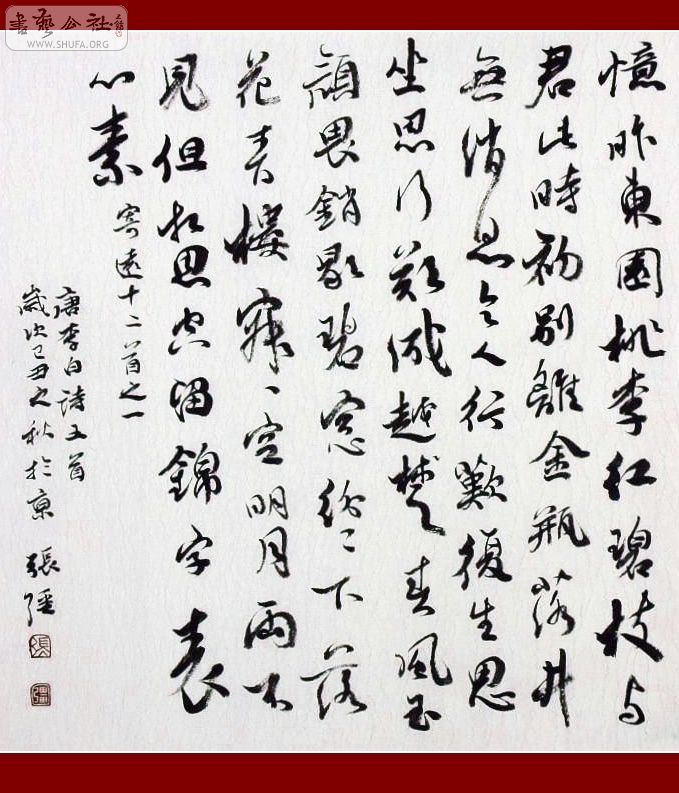 書藝公社
WWW.SHUFA.ORG
憶昨東園桃李紅碧枝与
君此時初别離金瓶落井
無消息令人行歎復坐思
坐思行歎成越楚春風玉
顔畏銷歇碧窓紛〻下落
花青樓寂〻空明月兩不
見但相思空留錦字表
心素
寄遠十二首之一
唐李白詩五首
歲次己丑之秋於京 張